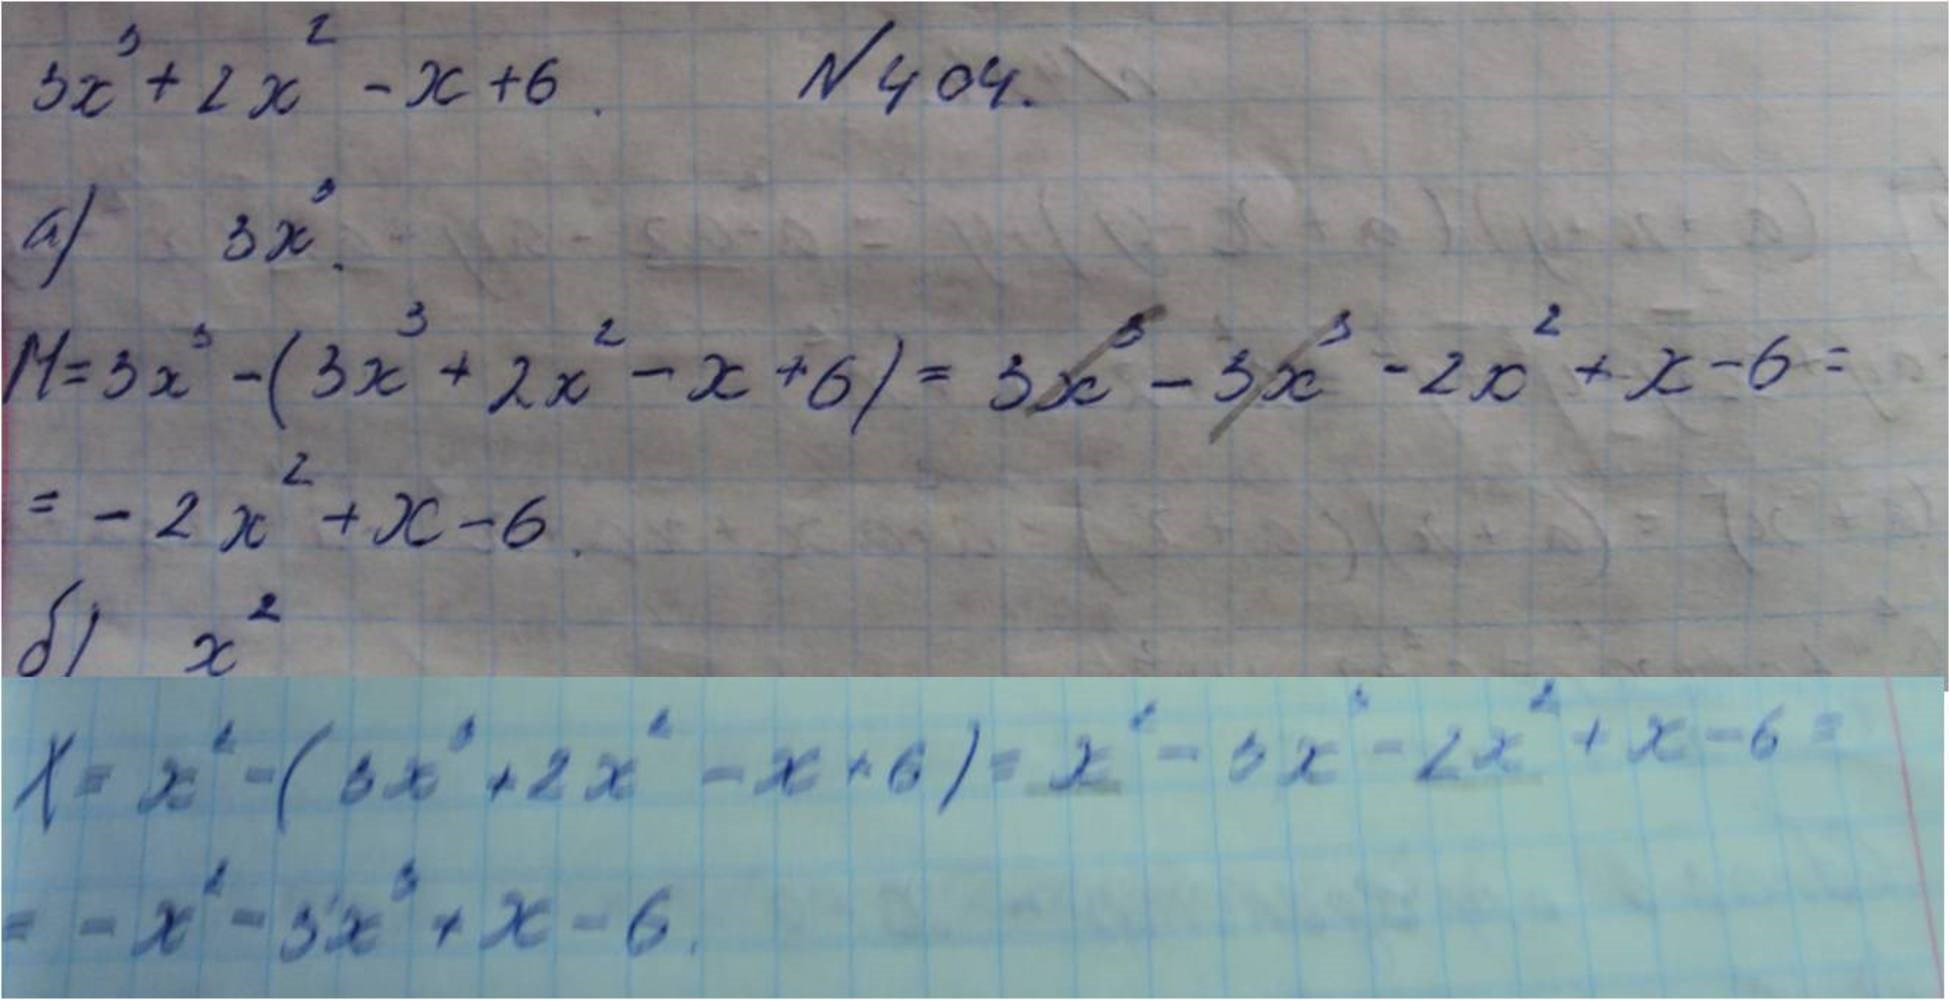 3x³ + 2x² - x + 6. N 404.
а) 3x³.
M = 3x³ - (3x³ + 2x² - x + 6) = 3x³ - 3x³ - 2x² + x - 6 =
= - 2x² + x - 6.
б) x²
X = x² - (3x³ + 2x² - x + 6) = x² - 3x³ - 2x² + x - 6 =
= - x² - 3x³ + x - 6.